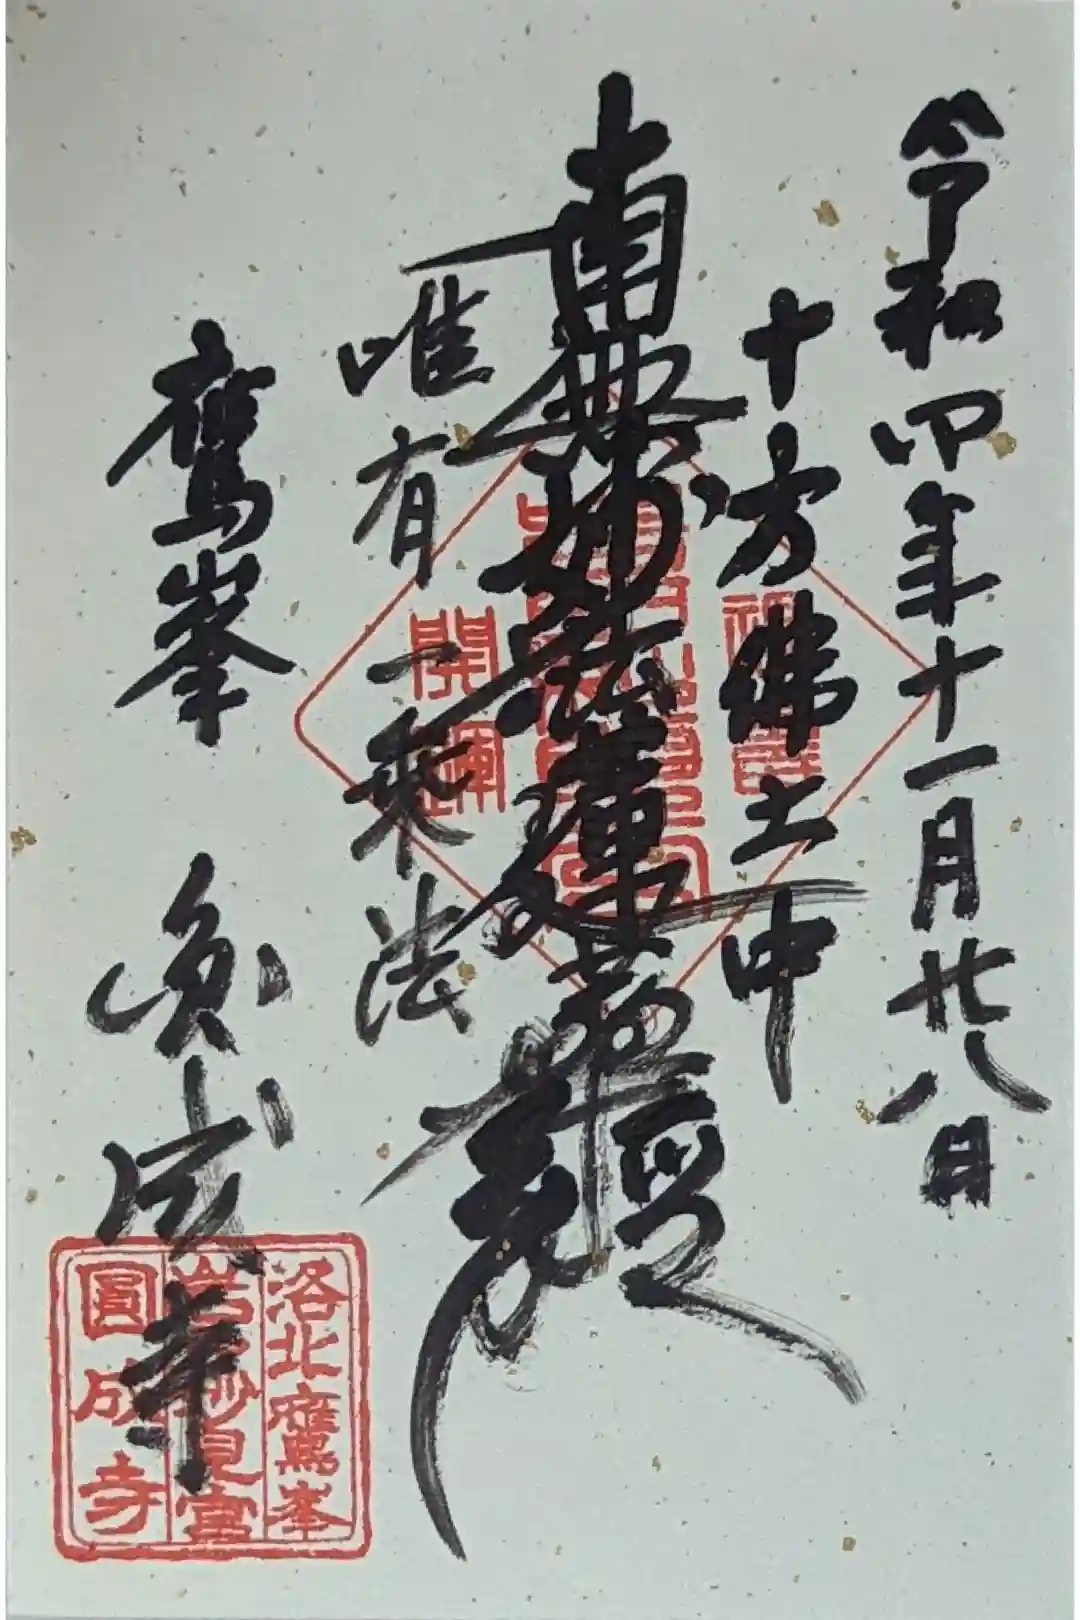 令和四年十一月廿八日
十方佛土中
南無妙法蓮華経
唯有一乗法
鷹峯 圓成寺
開運
洛北鷹峯
岩戸妙見宮
圓成寺